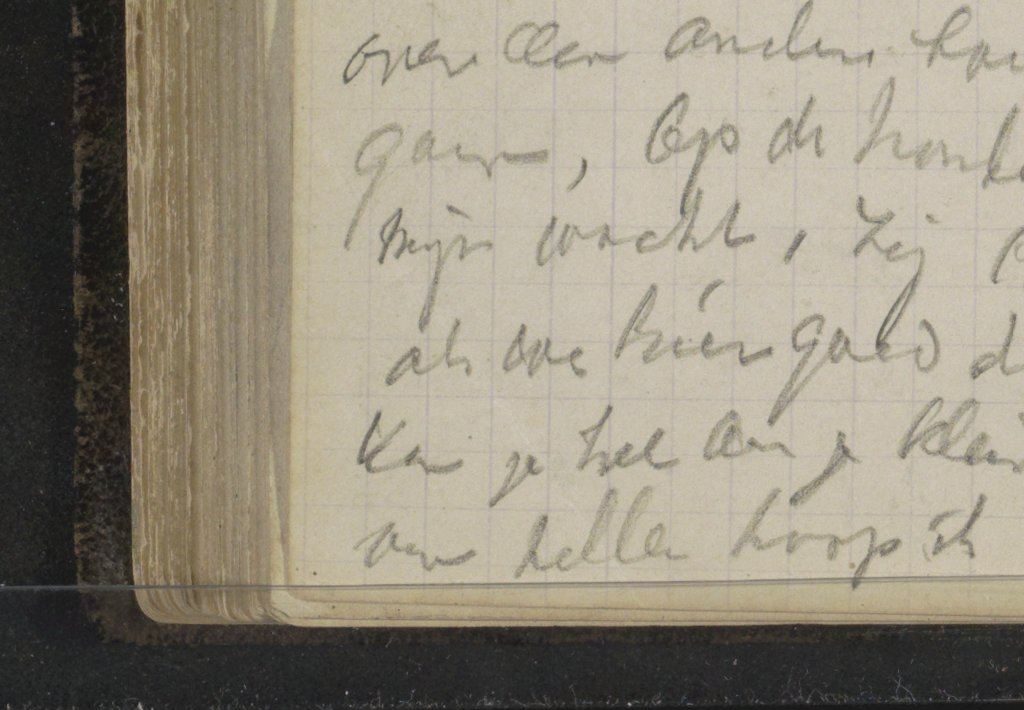 over een andere
gaan, Op de
mijn wacht, Zij
als we hier goed
Kan je het aan je
ver tellen hoop ik